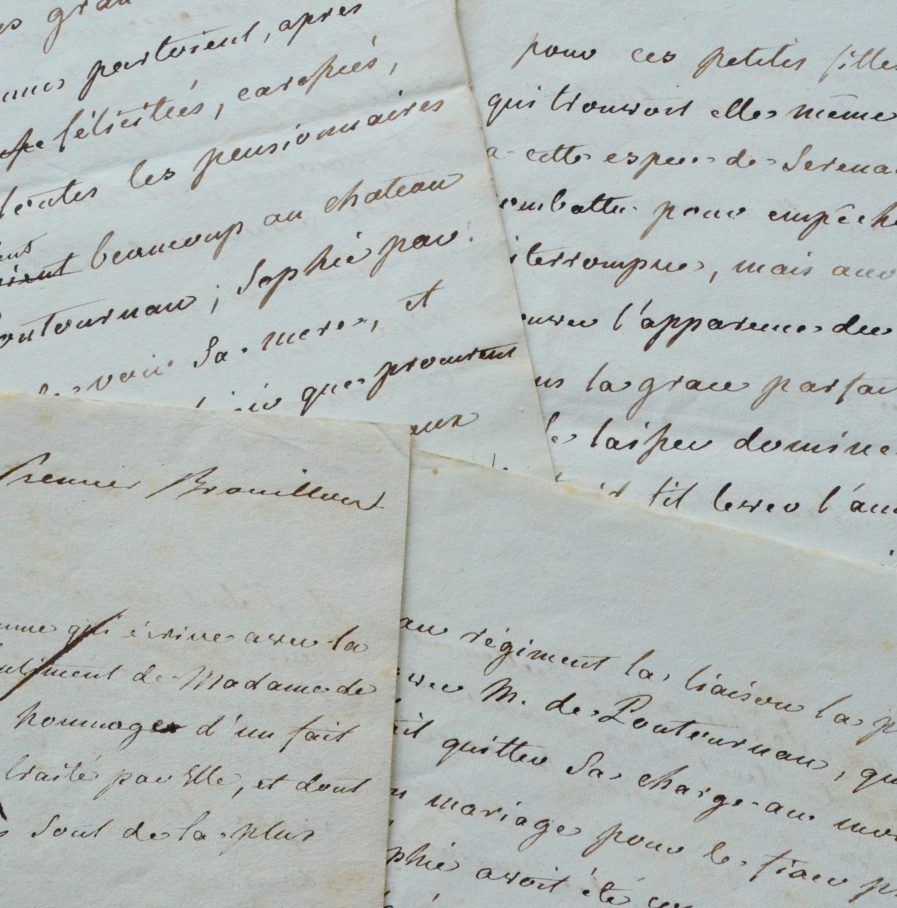 partoient, après
félicitées, caressés,
toutes les pensionnaires
beaucoup au chateau
Pontournau; Sophie par
voir sa mere, et
que
aux
pour ces petites filles
qui trouvoit elle même
a cette espece de Serena
combattu pour empêche
interrompue, mais
l'apparence du
la grace parfai
laisser domine
l'am
Premier Brouillon
qui écrive avec la
de Madame de
hommage d'un fait
traité par Elle, et dont
sont de la plus
au régiment la liaison la p
avec M. de Pontournau, qu
quitter sa charge au mo
mariage pour le fixer p
Sophie avoit été